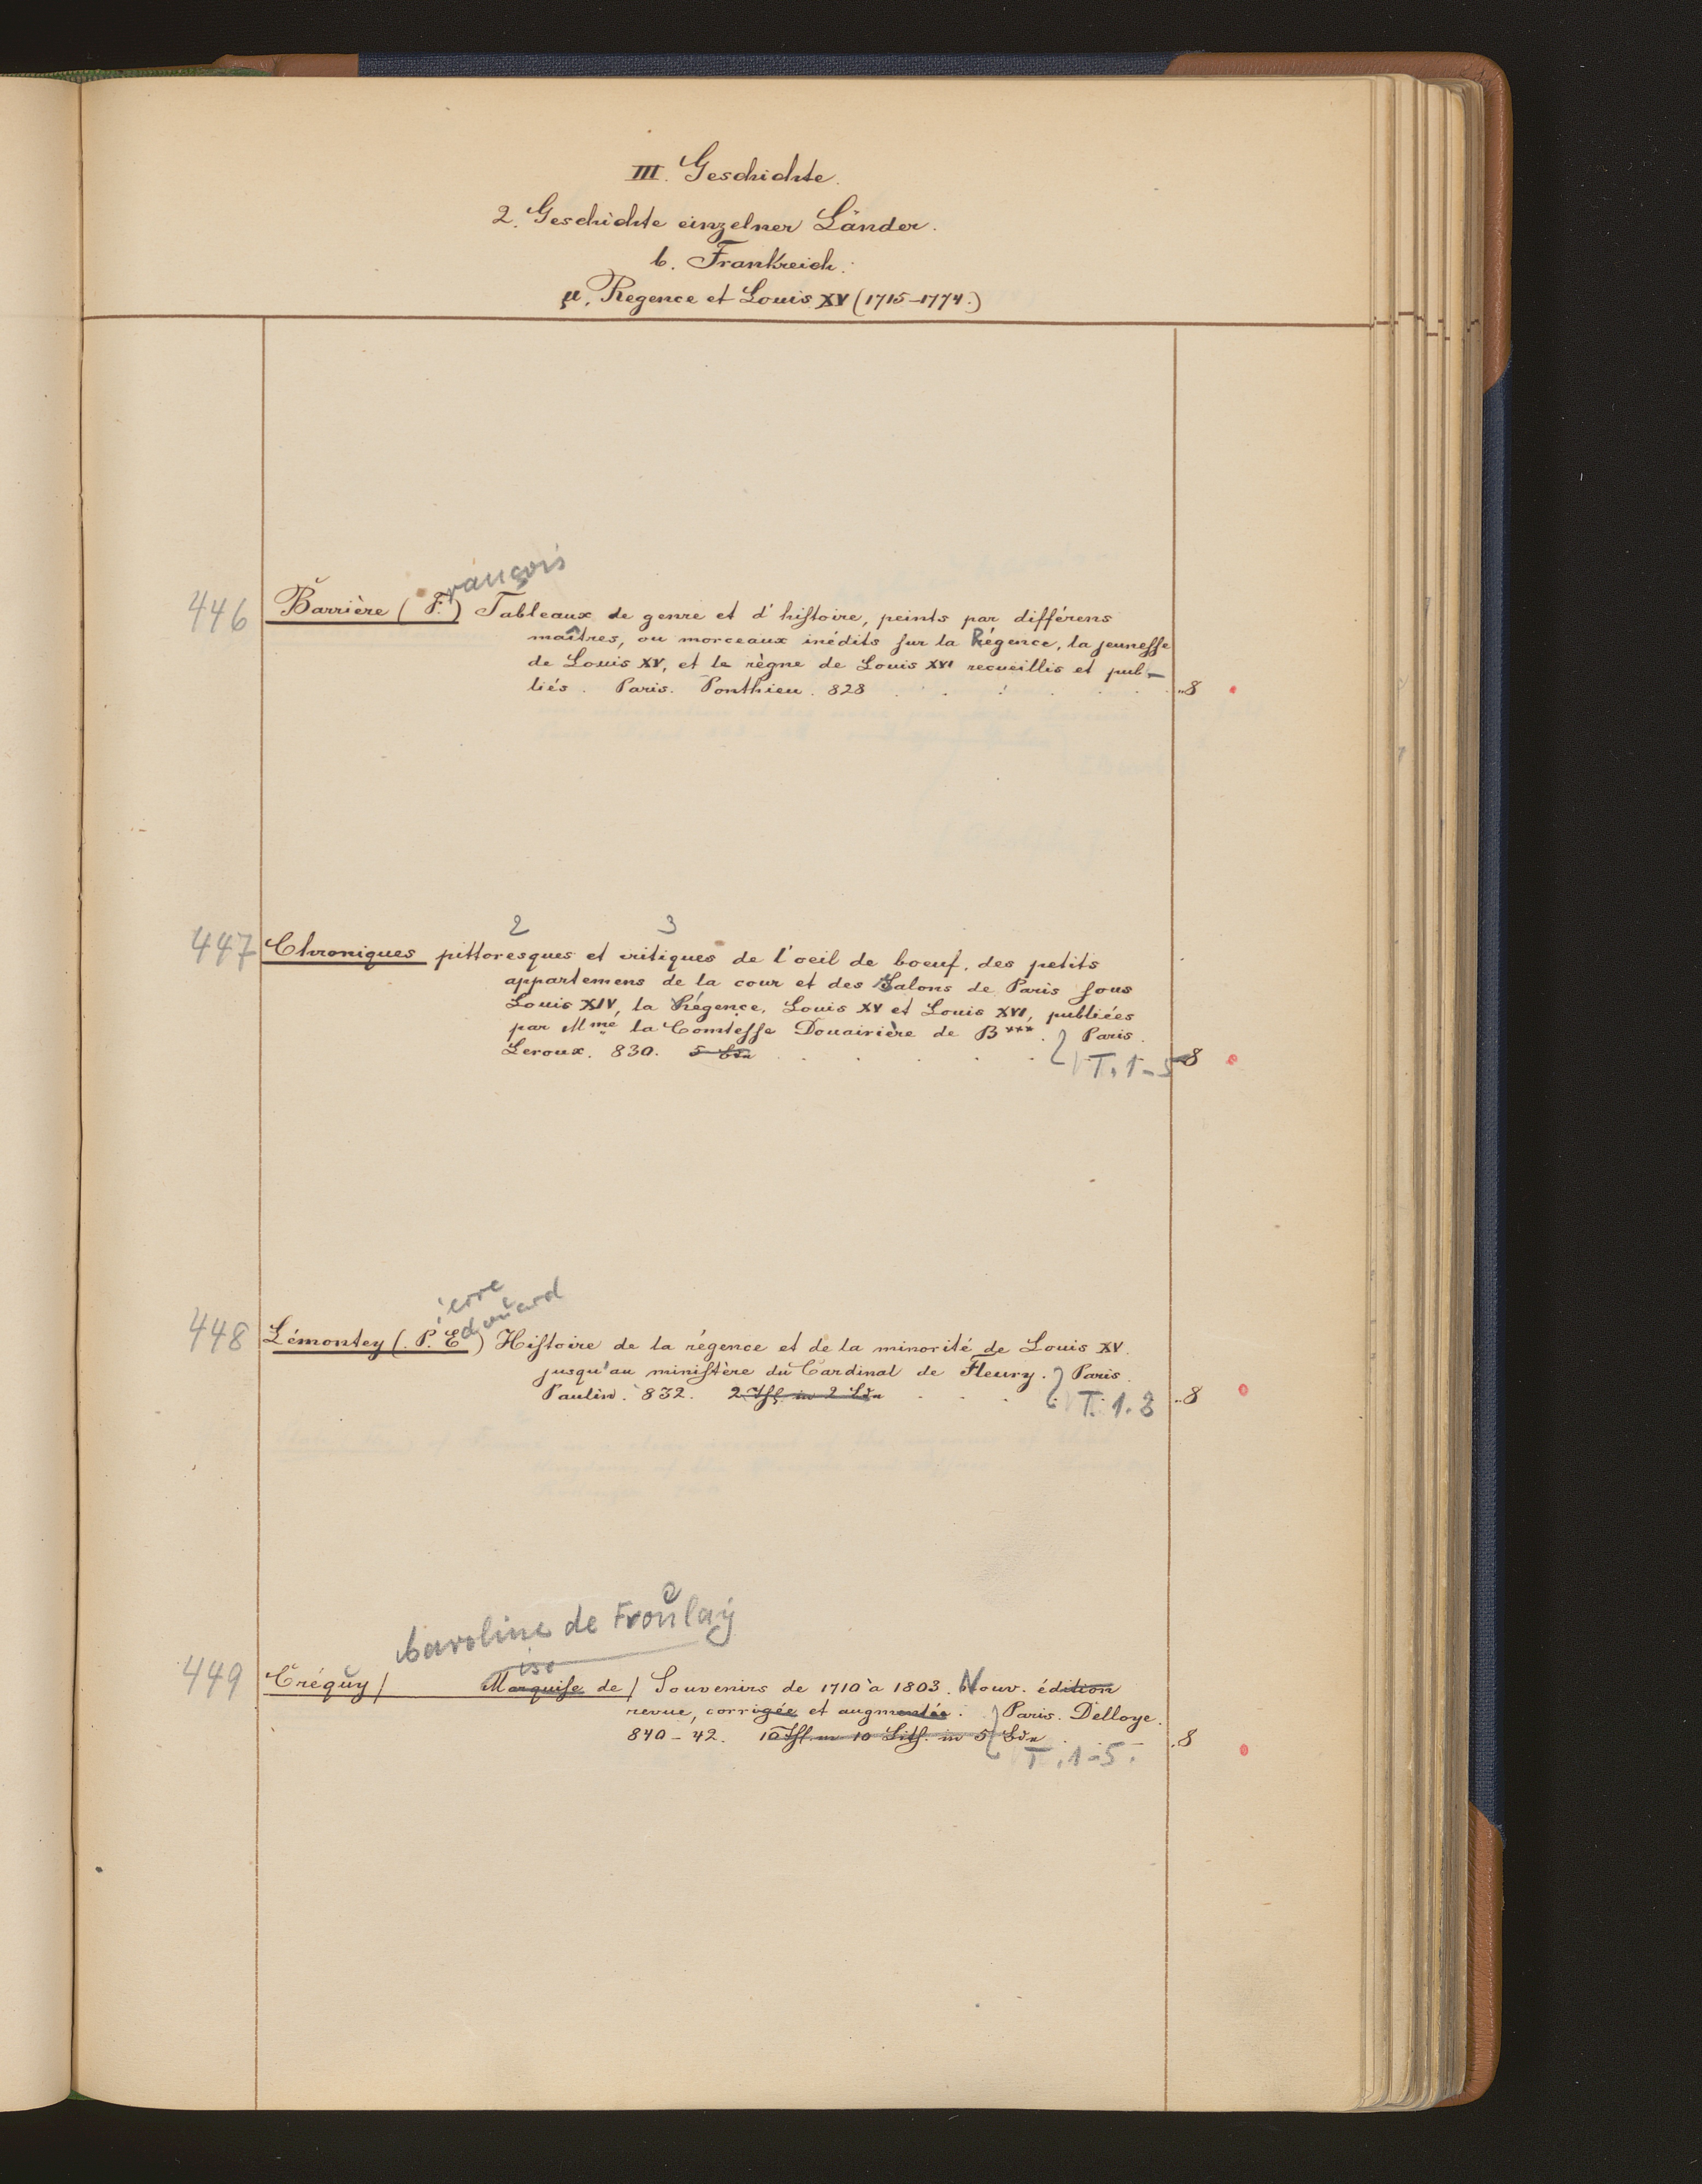 III. Geschichte.
2. Geschichte einzelner Länder.
b. Frankreich.
μ. Regence et Louis XV (1715-1774.)
rançois
446 Barrière (F.) Tableaux de genre et d'histoire, peints par différens
maîtres, ou morceaux inédits sur la Régence, la jeunesse
de Louis XV, et le règne de Louis XVI recueillis et pub-
liés. Paris. Ponthieu. 828 . . . . . . „8
2 3
447 Chroniques pittoresques et critiques de l'oeil de boeuf, des petits
appartemens de la cour et des Salons de Paris sous
Louis XIV, la Régence, Louis XV et Louis XVI, publiées
par Mme la Comtesse Douairière de B***. Paris.
Leroux. 830. 5 Bdn . . . . . 8
T. 1-5
ierre
douard
448 Lémontey (P. E) Histoire de la régence et de la minorité de Louis XV.
jusqu'au ministère du Cardinal de Fleury. Paris.
Paulin. 832. 2 Thl. in 2 Bdn . . . . „8
T. 1.2
Caroline de Froulay
ise
449 Créquy / Marquise de / Souvenirs de 1710 à 1803. Nouv. édition
revue, corrigée et augmentée. Paris. Delloye.
840-42. 10 Thl. in 10 Lith. in 5 Bdn . . .8
T. 1-5.